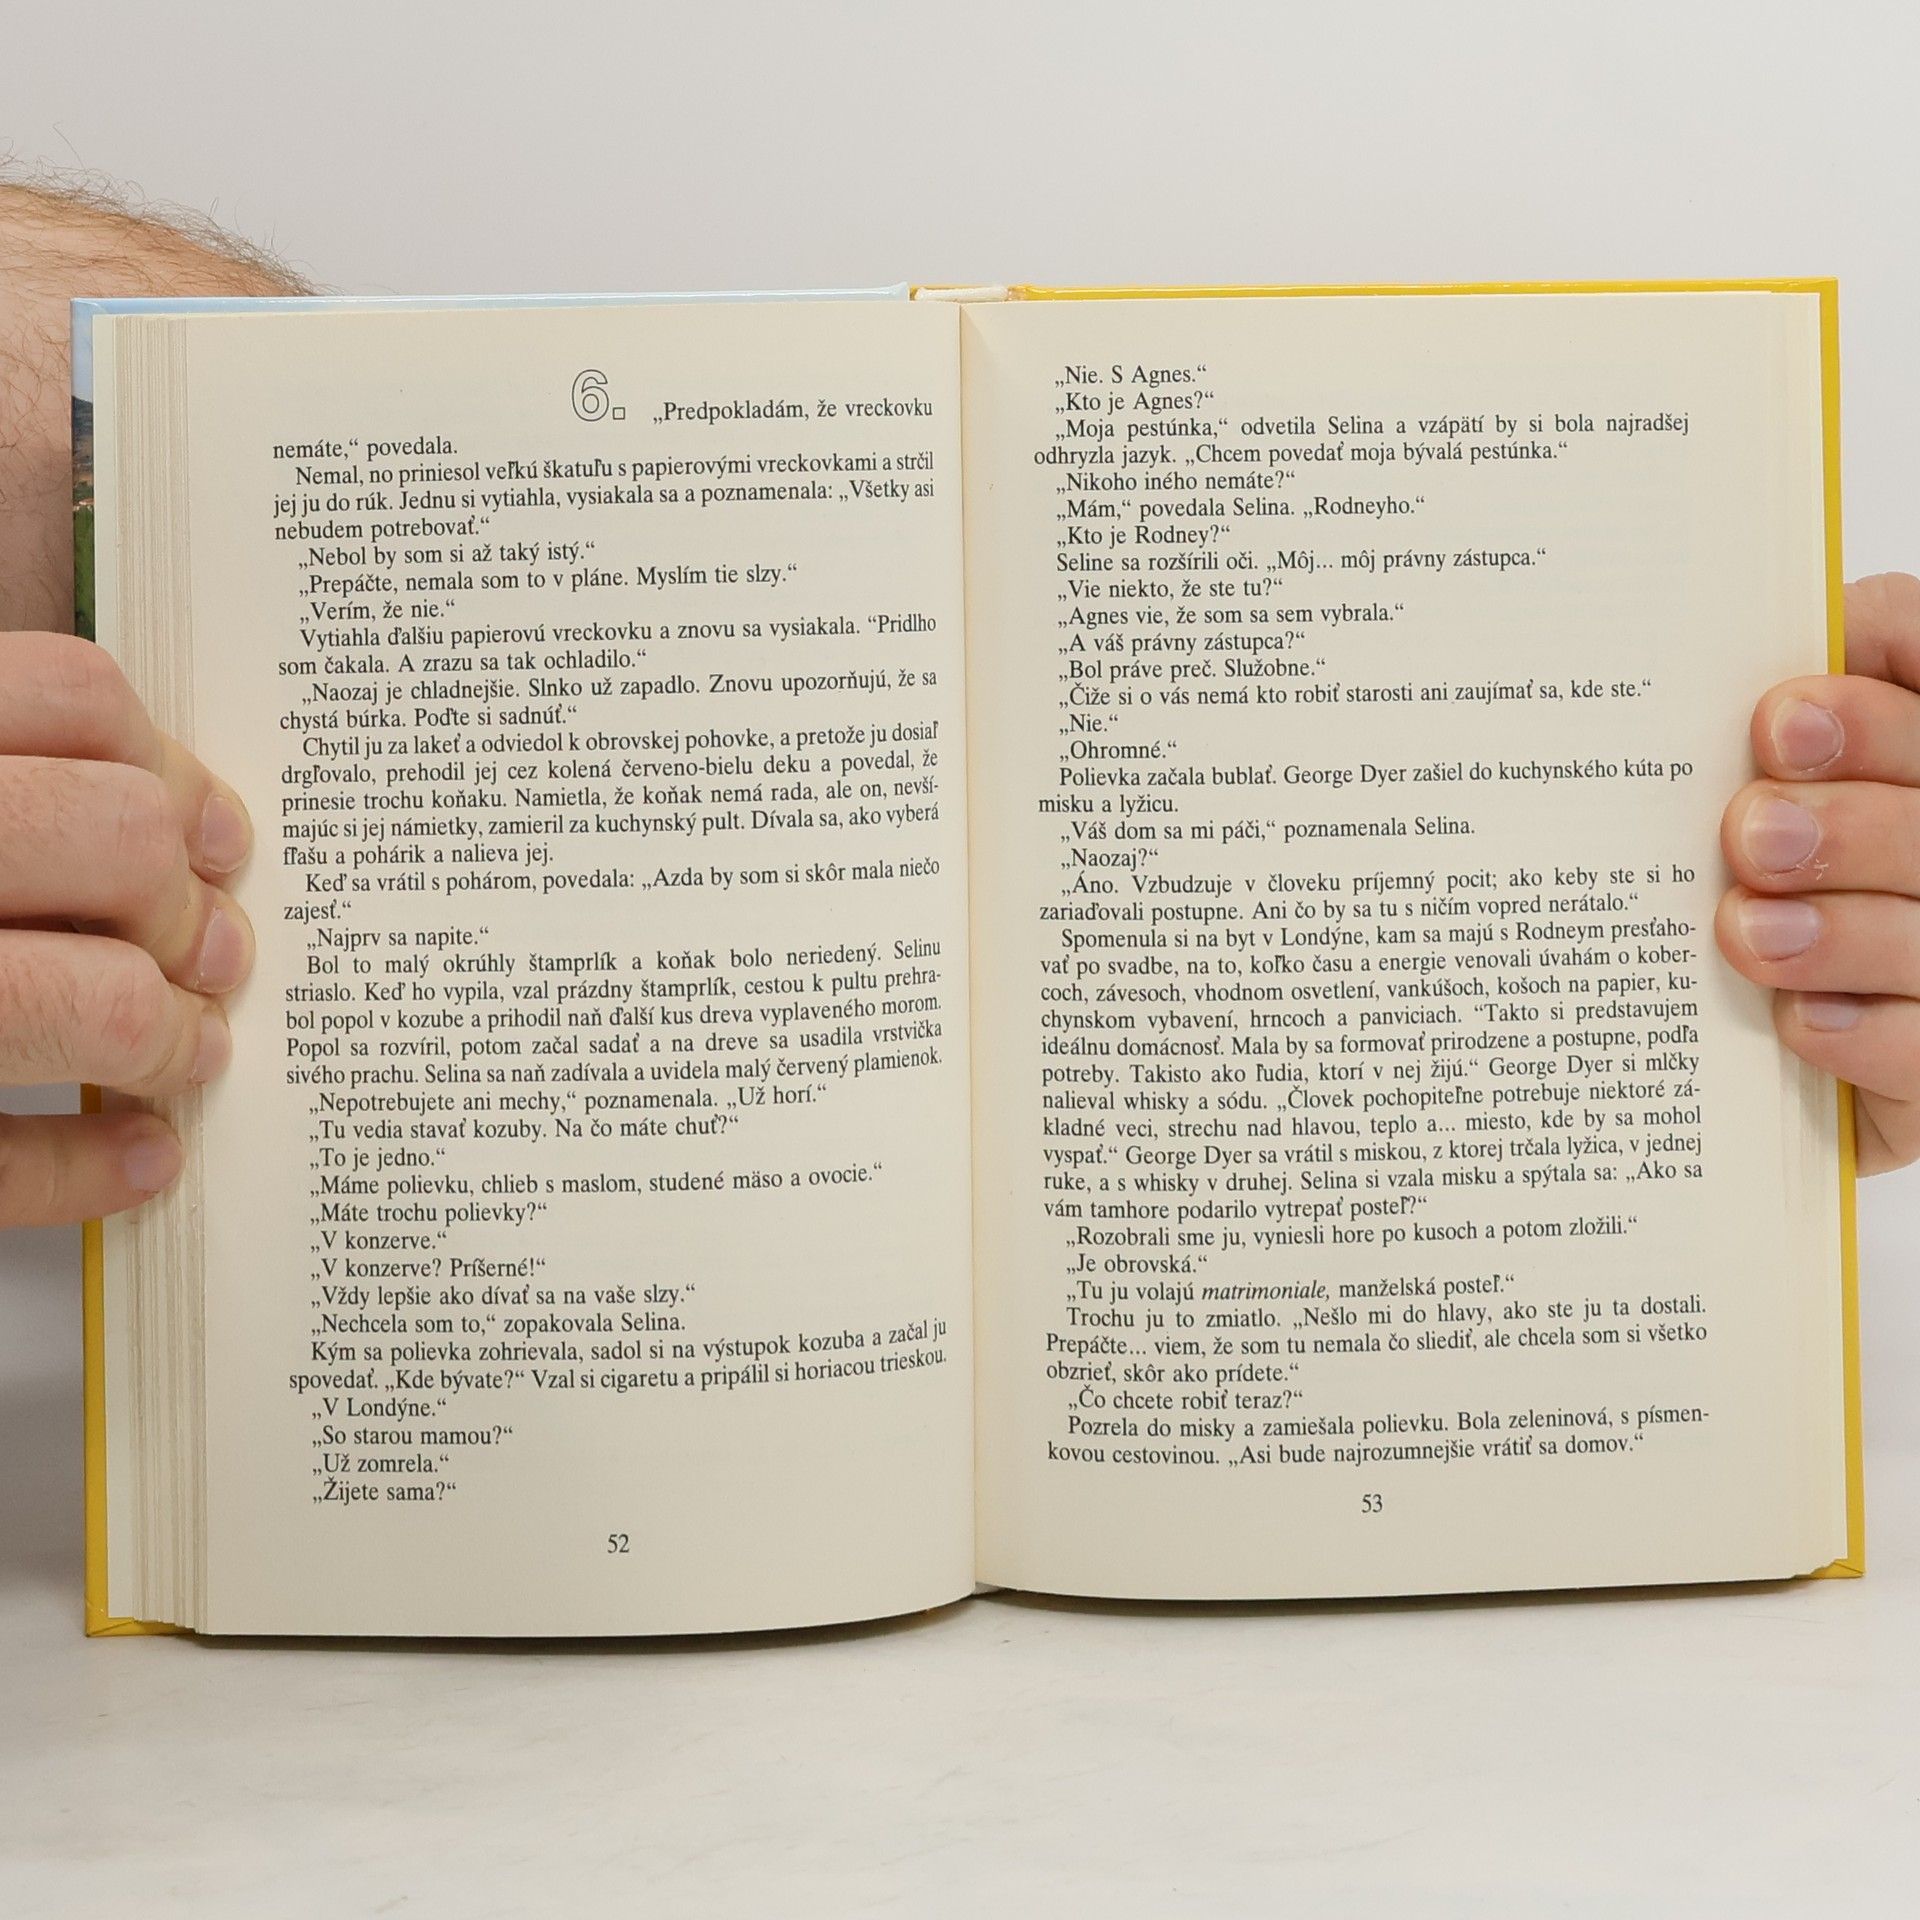 6. „Predpokladám, že vreckovku
nemáte,“ povedala.
Nemal, no priniesol veľkú škatuľu s papierovými vreckovkami a strčil
jej ju do rúk. Jednu si vytiahla, vysiakala sa a poznamenala: „Všetky asi
nebudem potrebovať.“
„Nebol by som si až taký istý.“
„Prepáčte, nemala som to v pláne. Myslím tie slzy.“
„Verím, že nie.“
Vytiahla ďalšiu papierovú vreckovku a znovu sa vysiakala. “Pridlho
som čakala. A zrazu sa tak ochladilo.“
„Naozaj je chladnejšie. Slnko už zapadlo. Znovu upozorňujú, že sa
chystá búrka. Poďte si sadnúť.“
Chytil ju za lakeť a odviedol k obrovskej pohovke, a pretože ju dosiaľ
drgľovalo, prehodil jej cez kolená červeno-bielu deku a povedal, že
prinesie trochu koňaku. Namietla, že koňak nemá rada, ale on, nevší-
majúc si jej námietky, zamieril za kuchynský pult. Dívala sa, ako vyberá
fľašu a pohárik a nalieva jej.
Keď sa vrátil s pohárom, povedala: „Azda by som si skôr mala niečo
zajesť.“
„Najprv sa napite.“
Bol to malý okrúhly štamprlík a koňak bolo neriedený. Selinu
striaslo. Keď ho vypila, vzal prázdny štamprlík, cestou k pultu prehra-
bol popol v kozube a prihodil naň ďalší kus dreva vyplaveného morom.
Popol sa rozvíril, potom začal sadať a na dreve sa usadila vrstvička
sivého prachu. Selina sa naň zadívala a uvidela malý červený plamienok.
„Nepotrebujete ani mechy,“ poznamenala. „Už horí.“
„Tu vedia stavať kozuby. Na čo máte chuť?“
„To je jedno.“
„Máme polievku, chlieb s maslom, studené mäso a ovocie.“
„Máte trochu polievky?“
„V konzerve.“
„V konzerve? Príšerné!“
„Vždy lepšie ako dívať sa na vaše slzy.“
„Nechcela som to,“ zopakovala Selina.
Kým sa polievka zohrievala, sadol si na výstupok kozuba a začal ju
spovedať. „Kde bývate?“ Vzal si cigaretu a pripálil si horiacou trieskou.
„V Londýne.“
„So starou mamou?“
„Už zomrela.“
„Žijete sama?“
52
„Nie. S Agnes.“
„Kto je Agnes?“
„Moja pestúnka,“ odvetila Selina a vzápätí by si bola najradšej
odhryzla jazyk. „Chcem povedať moja bývalá pestúnka.“
„Nikoho iného nemáte?“
„Mám,“ povedala Selina. „Rodneyho.“
„Kto je Rodney?“
Seline sa rozšírili oči. „Môj... môj právny zástupca.“
„Vie niekto, že ste tu?“
„Agnes vie, že som sa sem vybrala.“
„A váš právny zástupca?“
„Bol práve preč. Služobne.“
„Čiže si o vás nemá kto robiť starosti ani zaujímať sa, kde ste.“
„Nie.“
„Ohromné.“
Polievka začala bublať. George Dyer zašiel do kuchynského kúta po
misku a lyžicu.
„Váš dom sa mi páči,“ poznamenala Selina.
„Naozaj?“
„Áno. Vzbudzuje v človeku príjemný pocit; ako keby ste si ho
zariaďovali postupne. Ani čo by sa tu s ničím vopred nerátalo.“
Spomenula si na byt v Londýne, kam sa majú s Rodneym presťaho-
vať po svadbe, na to, koľko času a energie venovali úvahám o kober-
coch, závesoch, vhodnom osvetlení, vankúšoch, košoch na papier, ku-
chynskom vybavení, hrncoch a panviciach. “Takto si predstavujem
ideálnu domácnosť. Mala by sa formovať prirodzene a postupne, podľa
potreby. Takisto ako ľudia, ktorí v nej žijú.“ George Dyer si mlčky
nalieval whisky a sódu. „Človek pochopiteľne potrebuje niektoré zá-
kladné veci, strechu nad hlavou, teplo a... miesto, kde by sa mohol
vyspať.“ George Dyer sa vrátil s miskou, z ktorej trčala lyžica, v jednej
ruke, a s whisky v druhej. Selina si vzala misku a spýtala sa: „Ako sa
vám tamhore podarilo vytrepať posteľ?“
„Rozobrali sme ju, vyniesli hore po kusoch a potom zložili.“
„Je obrovská.“
„Tu ju volajú matrimoniale, manželská posteľ.“
Trochu ju to zmiatlo. „Nešlo mi do hlavy, ako ste ju ta dostali.
Prepáčte... viem, že som tu nemala čo sliediť, ale chcela som si všetko
obzrieť, skôr ako prídete.“
„Čo chcete robiť teraz?“
Pozrela do misky a zamiešala polievku. Bola zeleninová, s písmen-
kovou cestovinou. „Asi bude najrozumnejšie vrátiť sa domov.“
53